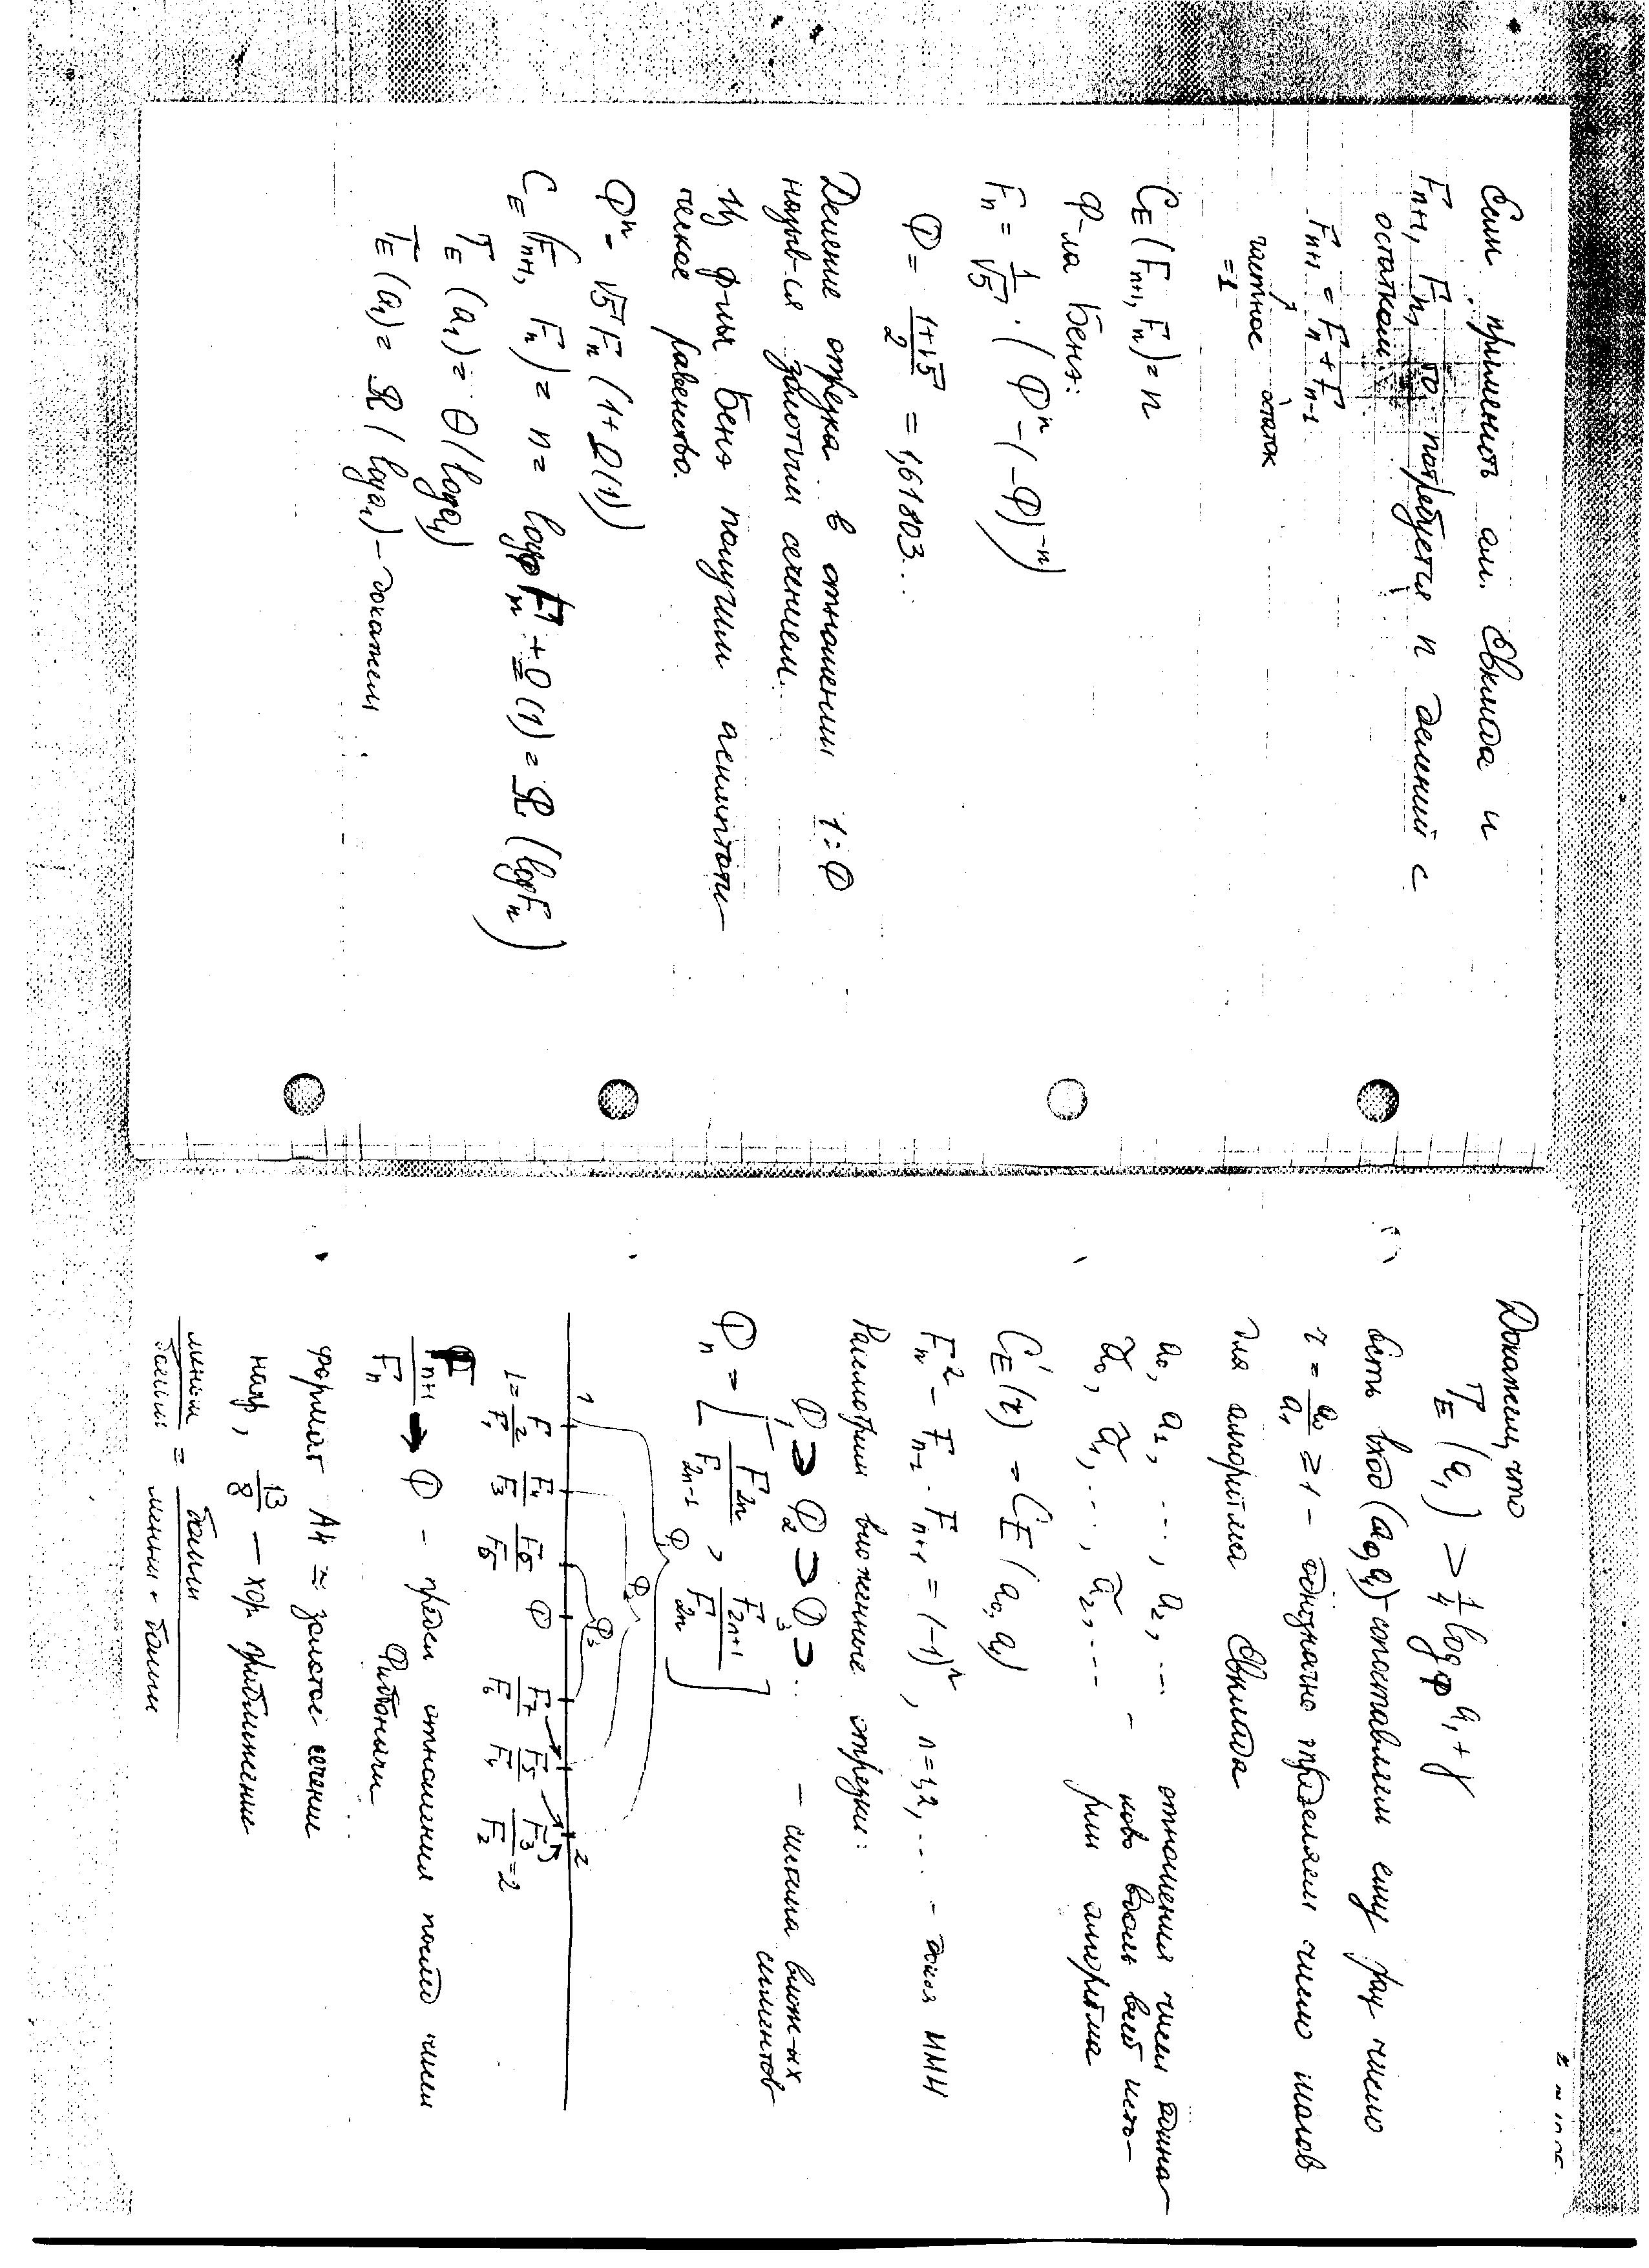 Если применить алг. Евклида и
Fn+1, Fn, то потребуется n делений с
остатком
Fn+1 = Fn + Fn-1
частное остаток
=1
CE(Fn+1, Fn) = n
Ф-ла Бенэ:
Fn = 1/√5 · (Φ^n - (-Φ)^-n)
Φ = (1+√5)/2 = 1,61803...
Деление отрезка в отношении 1:Φ
назыв-ся золотым сечением.
Из ф-лы Бенэ получим асимптоти-
ческое равенство.
Φ^n = √5 Fn (1 + O(1))
CE(Fn+1, Fn) = n = logΦ Fn + O(1) = Ω(log Fn)
TE(a1) = Θ(log a1)
TE(a1) = Ω(log a1) - докажем
Докажем, что
TE(a1) > 1/4 logΦ a1 + γ
Есть вход (a0, a1) - сопоставляем ему рац число
r = a0/a1 ≥ 1 - однозначно определяем число шагов
для алгоритма Евклида
a0, a1, ..., a2, ... - отношения чисел одина-
ã0, ã1, ..., ã2, ... ково вдоль всей исто-
рии алгоритма
C'E(r) = CE(a0, a1)
Fn² - Fn-1 · Fn+1 = (-1)^n, n=1,2,... - докаж ММИ
Рассмотрим вложенные отрезки:
Φ1 ⊃ Φ2 ⊃ Φ3 ⊃ ... - система влож-ых
сегментов
Φn = [F2n/F2n-1, F2n+1/F2n]
Φ1
Φ2
Φ3
1 2
1 = F2/F1 F4/F3 F6/F5 Φ F7/F6 F5/F4 F3/F2 = 2
Fn+1/Fn → Φ - предел отношения послед чисел
Фибоначчи
формат А4 ≈ золотое сечение
напр, 13/8 - хор приближение
меньш/больш = больш/(меньш + больш)